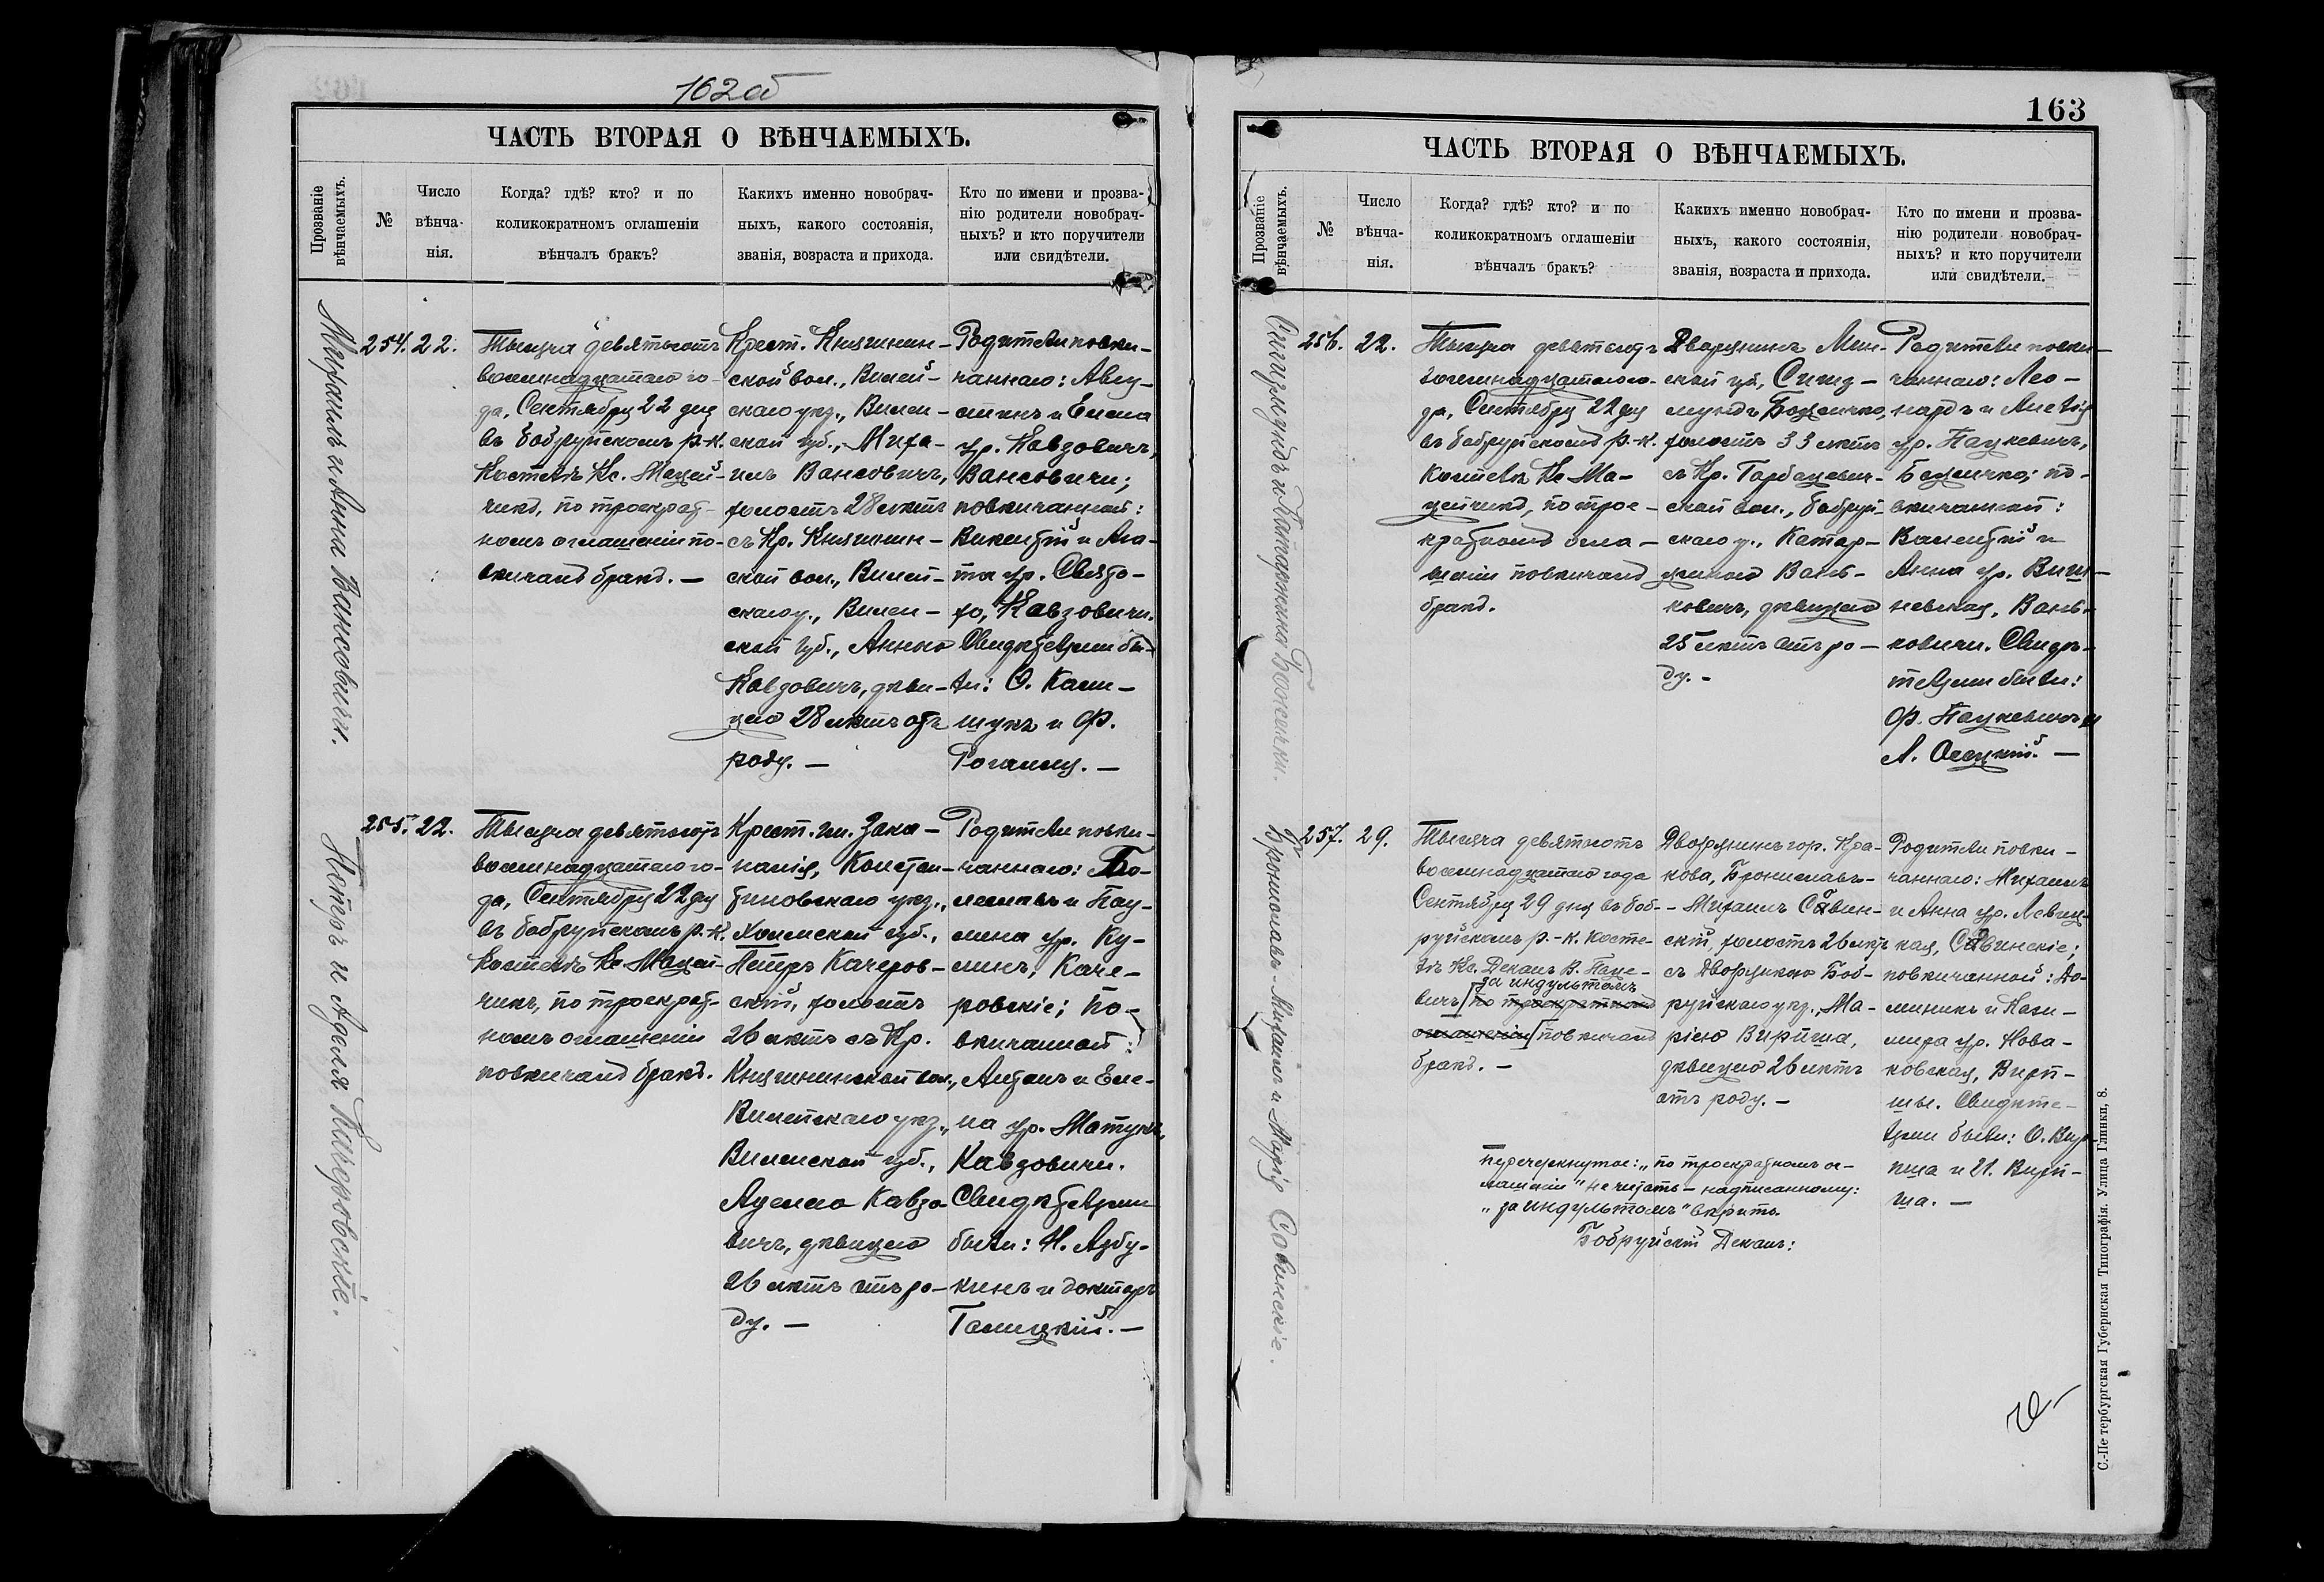 162об
ЧАСТЬ ВТОРАЯ О ВѢНЧАЕМЫХЪ.
Прозваніе
вѣнчаемыхъ.
№
Число
вѣнча-
нія.
Когда? гдѣ? кто? и по
коликократномъ оглашеніи
вѣнчалъ бракъ?
Какихъ именно новобрач-
ныхъ, какого состоянія,
званія, возраста и прихода.
Кто по имени и прозва-
нію родители новобрач-
ныхъ? и кто поручители
или свидѣтели.
Михаилъ и Анна Вансовичи.
254. 22.
Тысяча девятьсотъ
восемнадцатаго го-
да, Сентября 22 дня
въ Бобруйскомъ р.-к.
Костелѣ Кс. Мацей-
чикъ, по троекрат-
номъ оглашеніи по-
вѣнчалъ бракъ. —
Крест. Княгинин-
ской вол., Вилей-
скаго уѣз., Вилен-
ской губ., Миха-
илъ Вансовичъ,
холостъ 28 лѣтъ
съ Кр. Княгинин-
ской вол., Вилей-
скаго у., Вилен-
ской губ., Анною
Кавзовичъ, дѣви-
цею 28 лѣтъ отъ
роду. —
Родители повѣн-
чаннаго: Авгу-
стинъ и Елена
ур. Кавзовичъ,
Вансовичи;
повѣнчанной:
Викентій и Ага-
та ур. Свято-
хо, Кавзовичи.
Свидѣтелями бы-
ли: О. Каши-
щукъ и Ф.
Рогаль. —
Петръ и Аделя Качеровскіе.
255. 22.
Тысяча девятьсотъ
восемнадцатаго го-
да, Сентября 22 дня
въ Бобруйскомъ р.-к.
Костелѣ Кс. Мацей-
чикъ, по троекрат-
номъ оглашеніи
повѣнчалъ бракъ.
Крест. гм. Зака-
налія, Констан-
тиновскаго уѣз.,
Холмской губ.,
Петръ Качеров-
скій, холостъ
26 лѣтъ съ Кр.
Княгининской вол.,
Вилейскаго уѣз.,
Виленской губ.,
Аделею Кавзо-
вичъ, дѣвицею
26 лѣтъ отъ ро-
ду. —
Родители повѣн-
чаннаго: Бо-
леславъ и Пау-
лина ур. Ку-
линъ, Каче-
ровскіе; по-
вѣнчанной:
Антонъ и Еле-
на ур. Матукъ,
Кавзовичи.
Свидѣтелями
были: Н. Азбу-
кинъ и докторъ
Галицкій. —
163
ЧАСТЬ ВТОРАЯ О ВѢНЧАЕМЫХЪ.
Прозваніе
вѣнчаемыхъ.
№
Число
вѣнча-
нія.
Когда? гдѣ? кто? и по
коликократномъ оглашеніи
вѣнчалъ бракъ?
Какихъ именно новобрач-
ныхъ, какого состоянія,
званія, возраста и прихода.
Кто по имени и прозва-
нію родители новобрач-
ныхъ? и кто поручители
или свидѣтели.
Сигизмундъ и Катаржина Божечки.
256. 22.
Тысяча девятьсотъ
восемнадцатаго го-
да, Сентября 22 дня
въ Бобруйскомъ р.-к.
Костелѣ Кс. Ма-
цейчикъ, по трое-
кратномъ огла-
шеніи повѣнчалъ
бракъ.
Дворянинъ Мин-
ской губ., Сигиз-
мундъ Божечко,
холостъ 33 лѣтъ
съ Кр. Горбацевич-
ской вол., Бобруй-
скаго у., Катар-
жиною Вань-
ковичъ, дѣвицею
25 лѣтъ отъ ро-
ду. -
Родители повѣн-
чаннаго: Лео-
нардъ и Амелія
ур. Пацкевичъ,
Божечко; по-
вѣнчанной:
Валентій и
Анна ур. Виш-
невская, Вань-
ковичи. Свидѣ-
телями были:
Ф. Пацкевичъ и
А. Осецкій. —
Брониславъ-Михаилъ и Марія Совинскіе.
257. 29.
Тысяча девятьсотъ
восемнадцатаго года
Сентября 29 дня въ Боб-
руйскомъ р.-к. Косте-
лѣ Кс. Деканъ В. Паце-
за индультомъ
вичъ [по троекратномъ
оглашеніи] повѣнчалъ
бракъ. -
Дворянинъ гор. Кра-
кова, Брониславъ-
- Михаилъ Совин-
скій, холостъ 26 лѣтъ
съ Дворянкою Боб-
руйскаго уѣз., Ма-
ріею Вирпша,
дѣвицею 26 лѣтъ
отъ роду. -
Родители повѣн-
чаннаго: Михаилъ
и Анна ур. Левиц-
кая, Совинскіе;
повѣнчанной: До-
миникъ и Кази-
мира ур. Нова-
ковская, Вирп-
ши. Свидѣте-
лями были: О. Вир-
пша и И. Вирп-
ша. —
Перечеркнутое: „по троекратномъ ог-
лашеніи" не читать — надписанному:
„за индультомъ" вѣрить.
Бобруйскій Деканъ:
С.-Петербургская Губернская Типографія. Улица Глинки, 8.